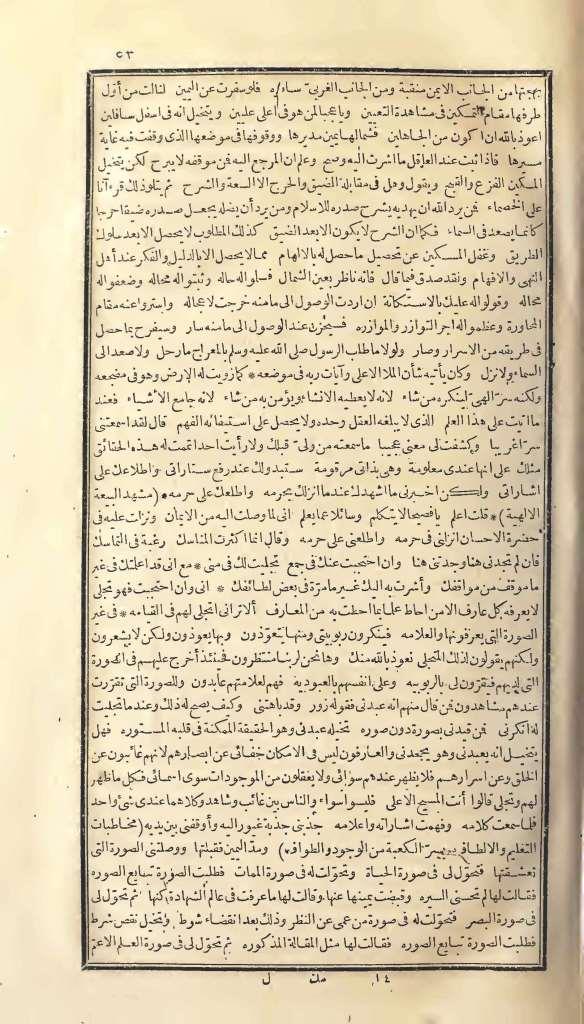 ٥٣
بهجتها من الجانب الايمن منقبة ومن الجانب الغربي ستاره فلو سفرت عن اليمين لنالت من أول
طرفها مقام التمكين فى مشاهدة التعيين ويا عجبا لمن هو فى أعلى عليين ويتخيل انه فى اسفل سافلين
اعوذ بالله ان اكون من الجاهلين فشمالها يمين مديرها ووقوفها فى موضعها الذى وقفت فيه غاية
سيرها فاذا ثبت عند العاقل ما أشرت اليه وصح وعلم ان المرجع اليه فن موقفه لا يبرح لكن يتخيل
المسكين الفزع والقبح ويقول وهل فى مقابلة الضيق والحرج الا السعة والشرح ثم يتلو ذلك قرءآنا
على الخصماء فن يرد الله ان يهديه يشرح صدره للاسلام ومن يرد أن يضله يجعل صدره ضيقا حرجا
كانما يصعد فى السماء فكما ان الشرح لا يكون الا بعد الضيق كذلك المطلوب لا يحصل الا بعد سلوك
الطريق وغفل المسكين عن تحصيل ما حصل له بالالهام مما لا يحصل الا بالدليل والفكر عند أهل
النهى والافهام ولقد صدق فيما قال فانه ناظر بعين الشمال فسلوا له حاله وثبتوا له محاله وضعفوا له
محاله وقولوا له عليك بالاستكانة ان اردت الوصول الى ما منه خرجت لا محاله واستروا عنه مقام
المجاورة وعظموا له اجر التزاور والموازره فسيحزن عند الوصول الى ما منه سار وسيفرح بما حصل
فى طريقه من الاسرار وصار ولولا ما طلب الرسول صلى الله عليه وسلم بالمعراج ما رحل ولا صعد الى
السماء ولا نزل وكان يأتيه شأن الملا الاعلى وآيات ربه فى موضعه * كما زويت له الارض وهو فى مضجعه
ولكنه سرّ الهىّ لينكره من شاء لانه لا يعطيه الانشاء ويؤمن به من شاء لانه جامع الأشياء فعند
ما اتيت على هذا العلم الذى لا يبلغه العقل وحده ولا يحصل على استيفائه الفهم قال لقد اسمعتنى
سرّا غريبا وكشفت لى معنى عجيبا ما سمعته من ولىّ قبلك ولا رأيت احدا تممت له هذه الحقائق
مثلك على انها عندى معلومة وهى بذاتى مرقومة ستبدو لك عند رفع ستاراتى واطلاعك على
اشاراتى ولكن اخبرنى ما اشهدك عند ما انزلك بحرمه واطلعك على حرمه * (مشهد البيعة
الالهية) * قلت اعلم يا فصيحا لا يتكلم وسائلا عما يعلم انى لما وصلت اليه من الايمان ونزلت عليه فى
حضرة الاحسان انزلنى فى حرمه واطلعنى على حرمه وقال انما اكثرت المناسك رغبة فى التماسك
فان لم تجدنى هنا وجدتنى هنا وان احتجبت عنك فى جمع تجليت لك فى منى * مع انى قد اعلمتك فى غير
ما موقف من مواقفك وأشرت به اليك غير ما مرّة فى بعض لطائفك * انى وان احتجبت فهو تجلى
لا يعرفه كل عارف الا من احاط علما بما احطت به من المعارف ألا ترانى اتجلى لهم فى القيامه * فى غير
الصورة التى يعرفونها والعلامه فينكرون ربوبيتى ومنها يتعوّذون وبها يعوذون ولكن لا يشعرون
ولكنهم يقولون لذلك المتجلى نعوذ بالله منك وها نحن لربنا منتظرون فحينئذ أخرج عليهم فى الصورة
التى لديهم فيقرّون لى بالربوبيه وعلى انفسهم بالعبوديه فهم لعلامتهم عابدون وللصورة التى تقرّرت
عندهم مشاهدون فن قال منهم انه عبدنى فقوله زور وقد باهتنى وكيف يصح له ذلك وعند ما تجليت
له انكرنى فن قيدنى بصورة دون صوره فتخيله عبد وهو الحقيقة الممكنة فى قلبه المستوره فهو
يتخيل انه يعبدنى وهو يجحدنى والعارفون ليس فى الامكان خفائى عن ابصارهم لانهم غائبون عن
الخلق وعن اسرارهم فلا يظهر عندهم سوائى ولا يعقلون من الموجودات سوى اسمائى فكل ما ظهر
لهم وتجلى قالوا أنت المسبح الاعلى فليسوا سواء والناس بين غائب وشاهد وكلاهما عندى شئ واحد
فلما سمعت كلامه وفهمت اشاراته واعلامه جذبنى جذبة غيور اليه وأوقفنى بين يديه (مخاطبات
التعليم والالطاف بسرّ الكعبة من الوجود والطواف) ومدّ اليمين فقبلتها ووصلتنى الصورة التى
تعشقتها فتحوّل لى فى صورة الحياة وتحوّلت له فى صورة الممات فطلبت الصورة تبايع الصوره
فقالت لها لم تحسنى السيره وقبضت يمينها عنها وقالت لها ما عرفت فى عالم الشهادة كنها ثم تحوّل لى
فى صورة البصر فتحوّلت له فى صورة من عمى عن النظر وذلك بعد انقضاء شوط وتخيل نقص شرط
فطلبت الصورة تبايع الصوره فقالت لها مثل المقالة المذكوره ثم تحوّل لى فى صورة العلم الاعم
١٤ مك ل